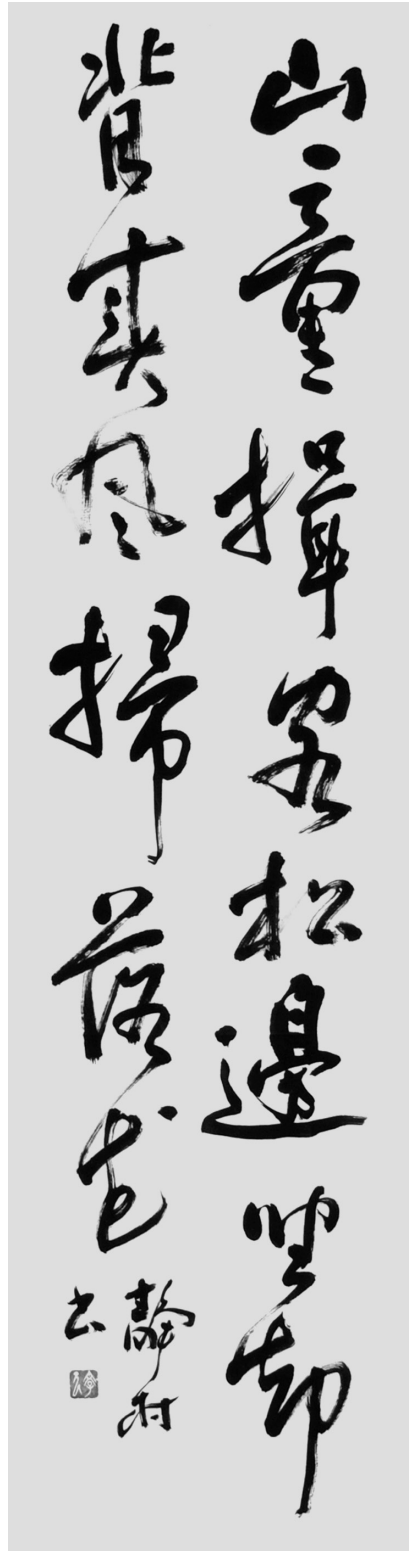 山童揖客松邊坐却
背春風掃落花
静村
書